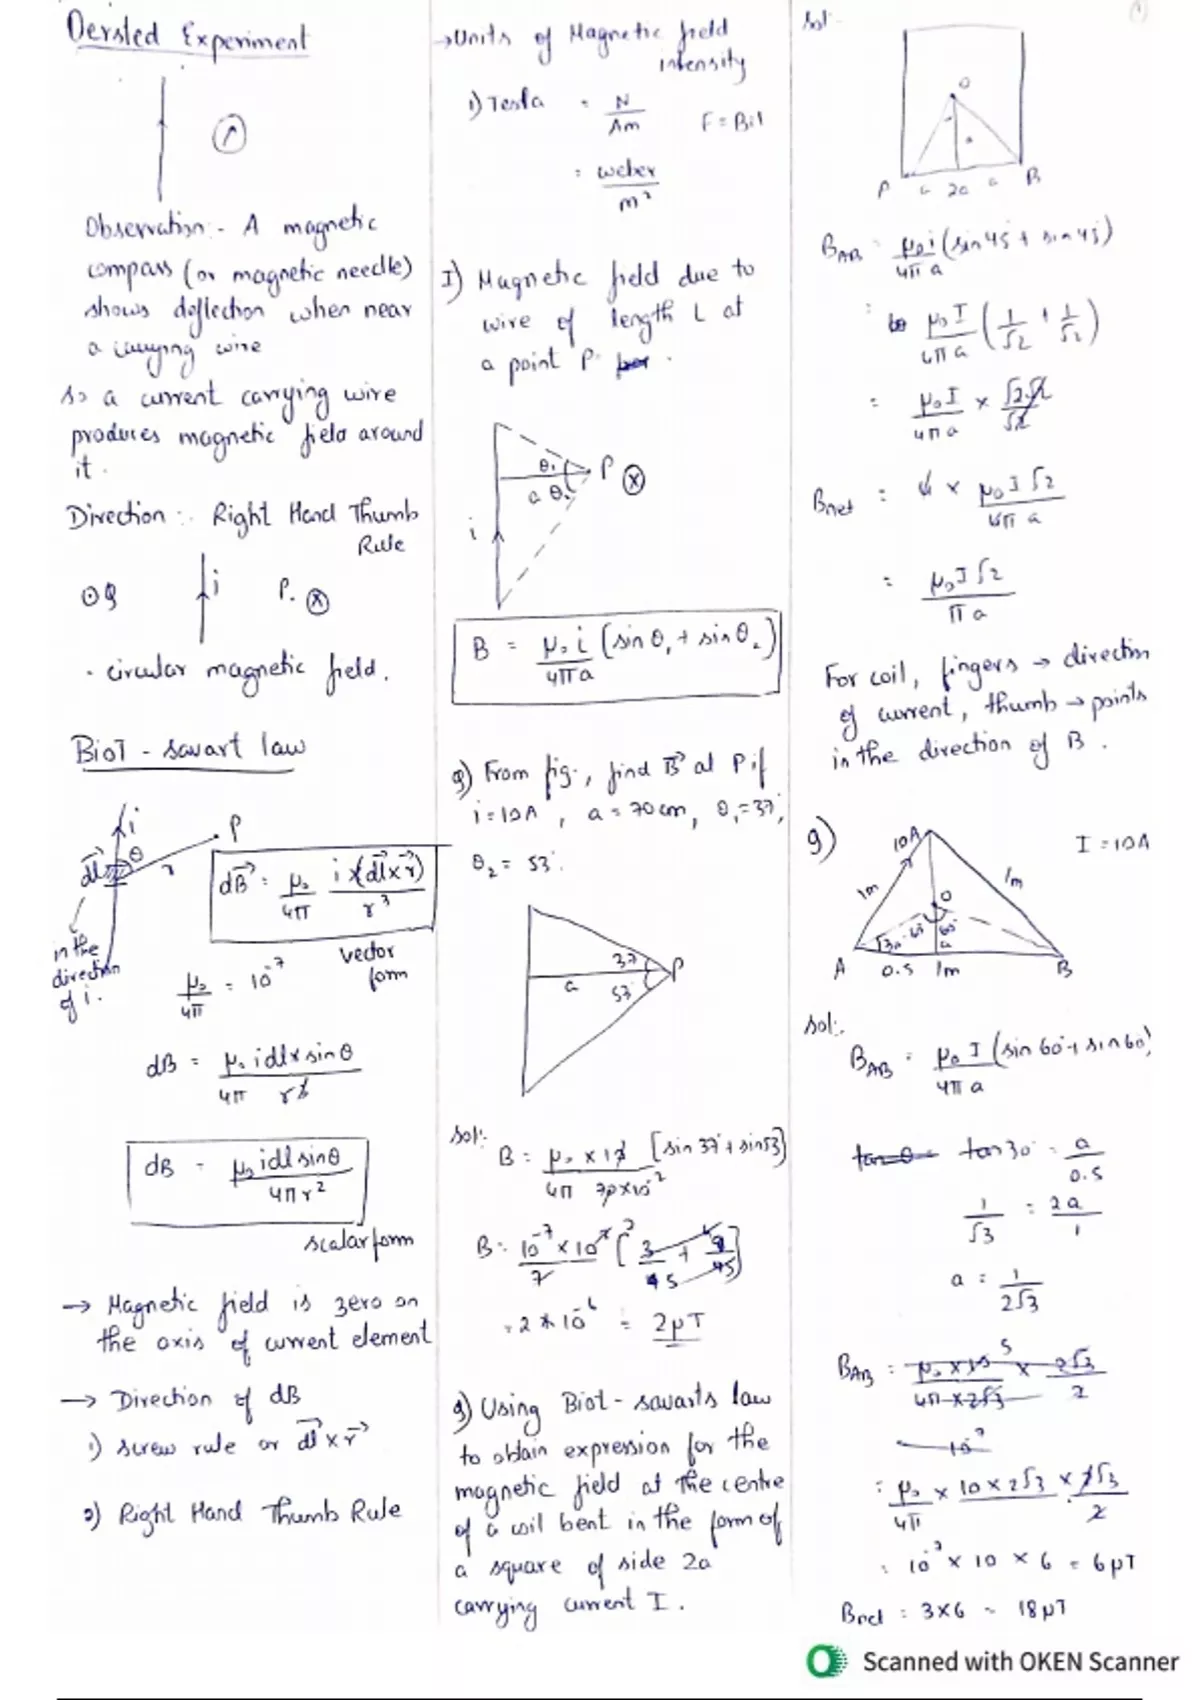 Oersted Experiment
Observation:- A magnetic
compass (or magnetic needle)
shows deflection when near
a carrying wire
so a current carrying wire
produces magnetic field around
it.
Direction:- Right Hand Thumb
Rule
⊙ Q i P. ⊗
· circular magnetic field.
BioT - savart law
i
P
θ
dl→
r
in the
direction
of i.
dB→ = μ₀/4π i(dl→×r→)/r³
vector
form
μ₀/4π = 10⁻⁷
dB = μ₀/4π idlr sinθ/r³
dB = μ₀idl sinθ/4πr²
scalar form
→ Magnetic field is zero on
the axis of current element
→ Direction of dB
1) screw rule or dl→×r→
2) Right Hand Thumb Rule
→Units of Magnetic field
intensity
1) Tesla = N/Am F = Bil
= weber/m²
I) Magnetic field due to
wire of length L at
a point P.
θ₁ P ⊗
a θ₂
i
B = μ₀i/4πa (sinθ₁ + sinθ₂)
Q) From fig., find B→ at P if
i = 10A, a = 70cm, θ₁ = 37°,
θ₂ = 53°.
37 P
a 53°
sol:
B = μ₀ × 10/4π 70×10⁻² [sin 37° + sin 53]
B = 10⁻⁷ × 10²/7 [3/5 + 4/5]
= 2 * 10⁻⁶ = 2μT
Q) Using Biot - savarts law
to obtain expression for the
magnetic field at the centre
of a coil bent in the form of
a square of side 2a
carrying current I.
Sol:-
O
a
A a 2a a B
B_AB = μ₀i/4πa (sin 45 + sin 45)
= μ₀I/4πa (1/√2 + 1/√2)
B_net = 4 × μ₀I√2/4πa
= μ₀I√2/πa
For coil, fingers → direction
of current, thumb → points
in the direction of B.
Q) 10A I = 10A
1m 1m
O
60° 60°
a
A 0.5 1m B
sol:.
B_AB = μ₀I/4πa (sin 60° + sin 60°)
tan θ = tan 30° = a/0.5
1/√3 = 2a/1
a = 1/2√3
= μ₀/4π × 10 × 2√3 × 2√3/2
= 10⁻⁷ × 10 × 6 = 6μT
B_net = 3×6 = 18μT
Scanned with OKEN Scanner